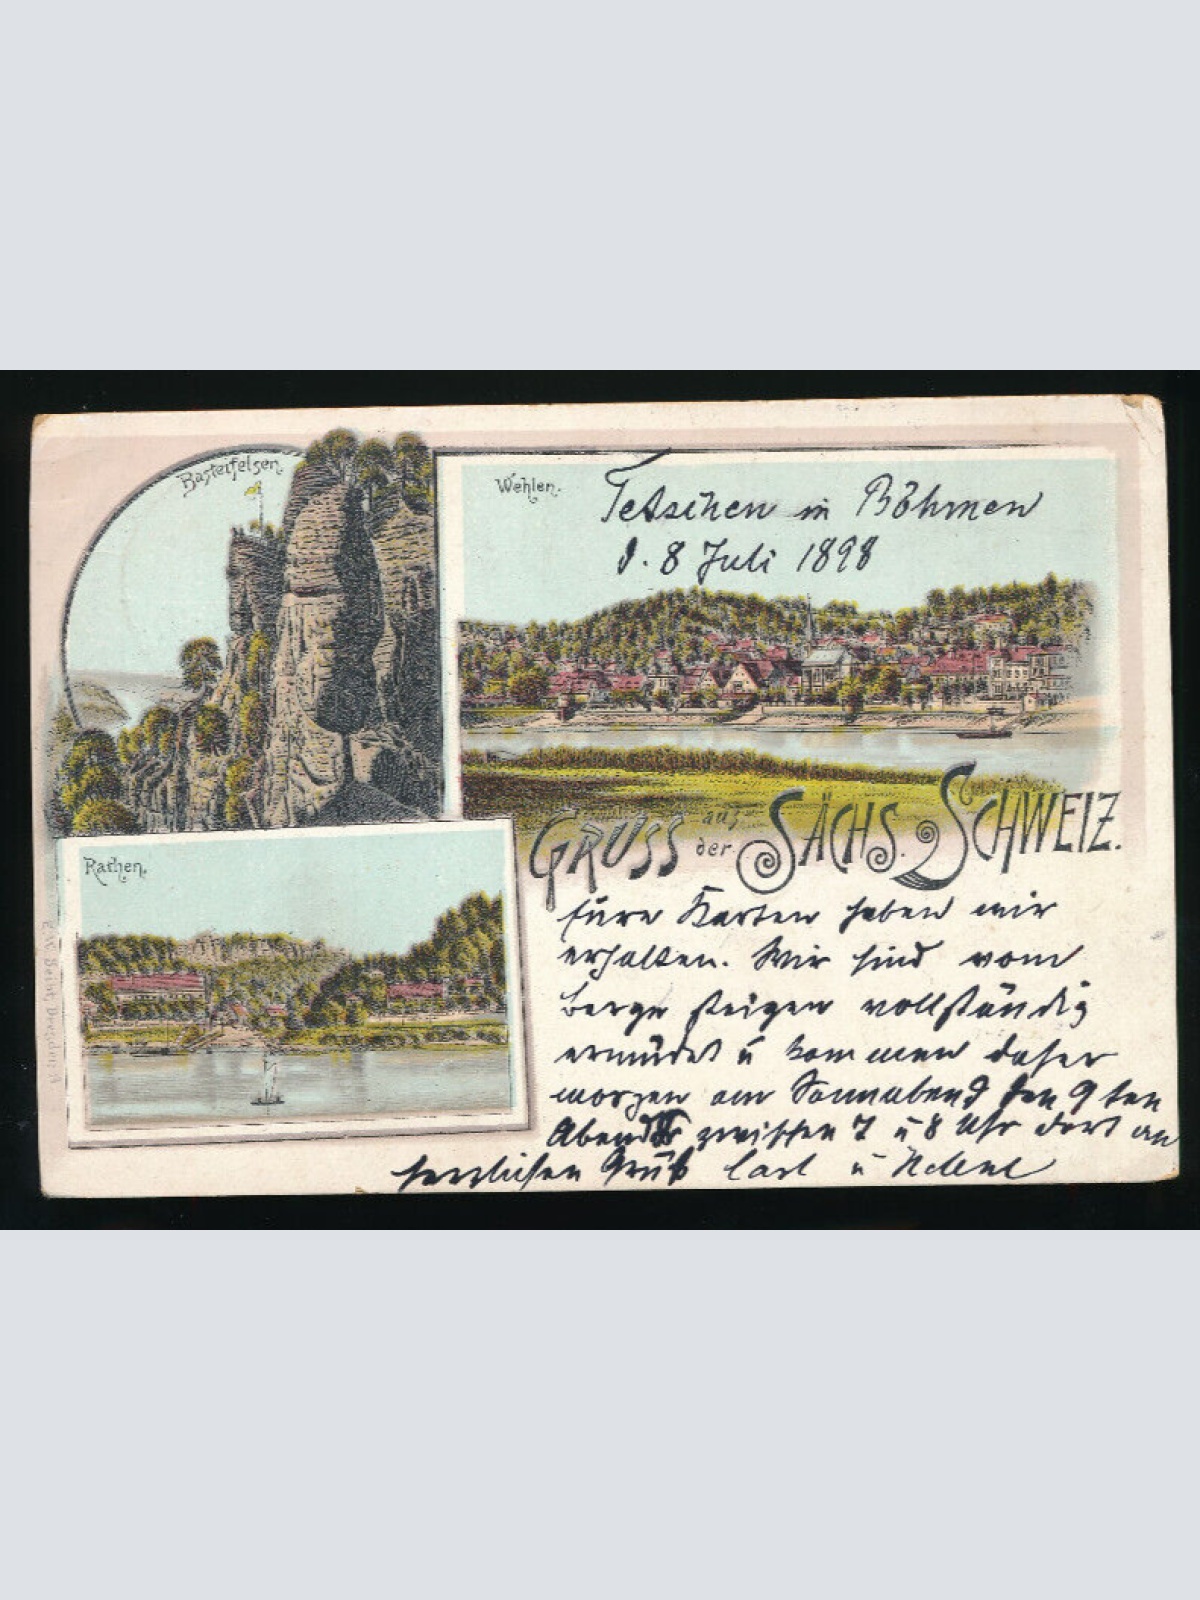 Basteifelsen.
Wehlen.
Tetschen in Böhmen
d. 8 Juli 1898
Gruss aus der Sächs. Schweiz.
Rathen.
Eure Karten haben wir
erhalten. Wir sind vom
berge steigen vollständig
ermüdet u kommen daher
morgen am Sonnabend den 9ten
Abends zwischen 7 u 8 Uhr dort an
herzlichen Gruß Carl u Helene
Dresden